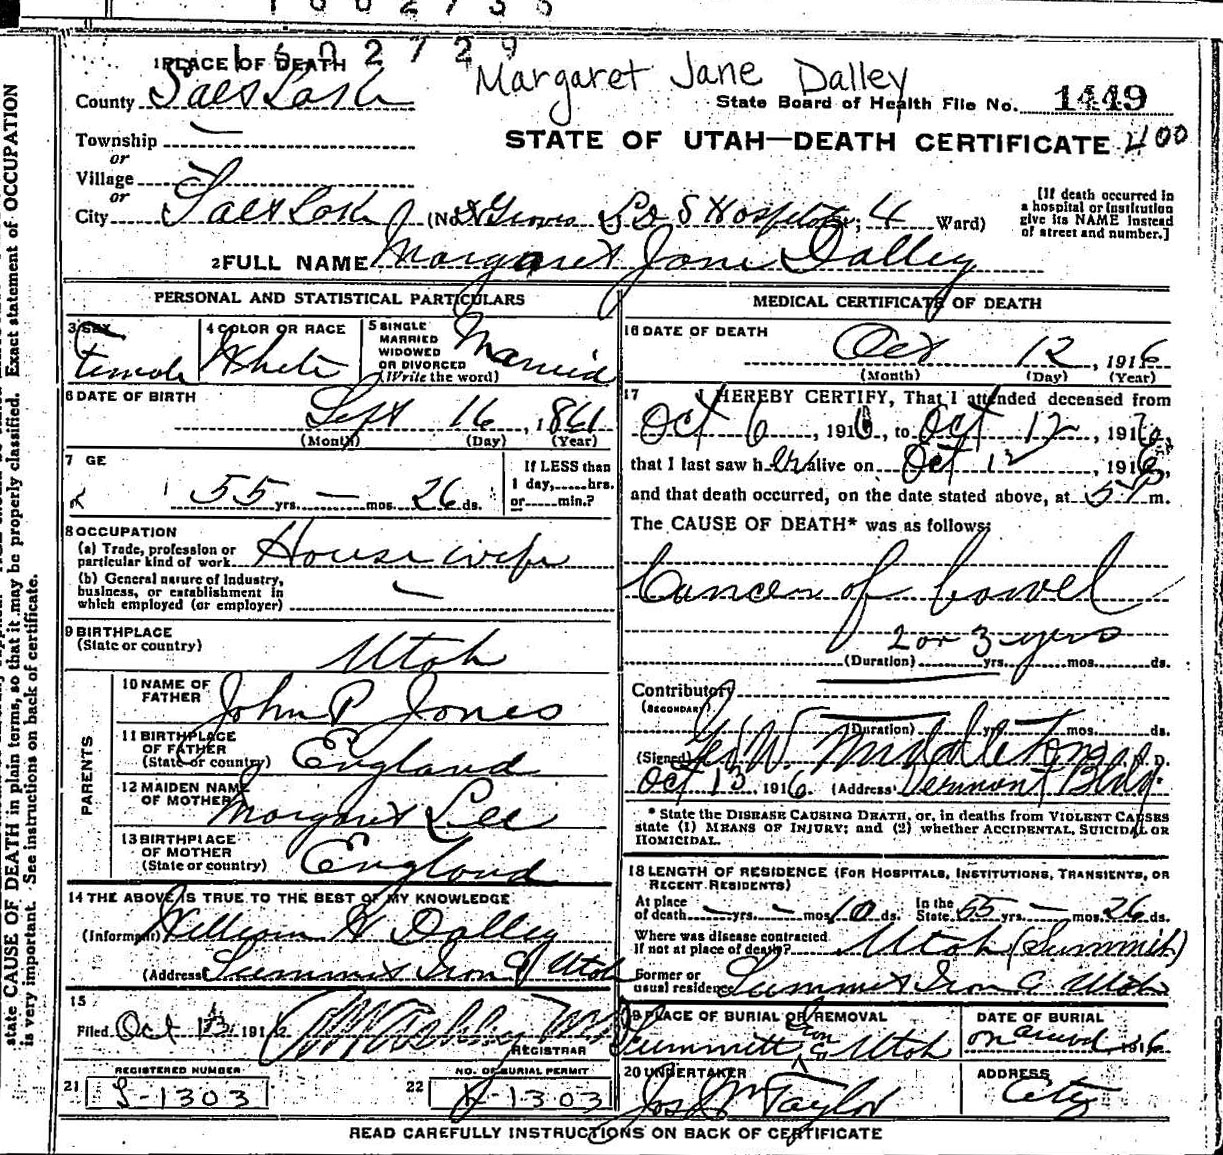 1602735
1602729
Margaret Jane Dalley
1 PLACE OF DEATH
County Salt Lake
State Board of Health File No. 1449
Township —
STATE OF UTAH—DEATH CERTIFICATE 400
or
Village
or
City Salt Lake (No. Groves L D S Hospital; 4 Ward)
[If death occurred in a hospital or institution give its NAME instead of street and number.]
2 FULL NAME Margaret Jane Dalley
PERSONAL AND STATISTICAL PARTICULARS
3 SEX Female
4 COLOR OR RACE White
5 SINGLE MARRIED WIDOWED OR DIVORCED (Write the word) Married
6 DATE OF BIRTH
Sept 16, 1861
(Month) (Day) (Year)
7 GE
55 yrs. — mos. 26 ds.
If LESS than 1 day, hrs. or min.?
8 OCCUPATION
(a) Trade, profession or particular kind of work Housewife
(b) General nature of Industry, business, or establishment in which employed (or employer) —
9 BIRTHPLACE (State or country) Utah
PARENTS
10 NAME OF FATHER John P Jones
11 BIRTHPLACE OF FATHER (State or country) England
12 MAIDEN NAME OF MOTHER Margaret Lee
13 BIRTHPLACE OF MOTHER (State or country) England
14 THE ABOVE IS TRUE TO THE BEST OF MY KNOWLEDGE
(Informant) William H Dalley
(Address) Summit Iron Co Utah
15
Filed Oct 13 191
REGISTRAR
21 REGISTERED NUMBER
S-1303
22 NO. OF BURIAL PERMIT
1303
MEDICAL CERTIFICATE OF DEATH
16 DATE OF DEATH
Oct 12, 1916
(Month) (Day) (Year)
17 I HEREBY CERTIFY, That I attended deceased from
Oct 6, 1916, to Oct 12, 1916,
that I last saw her alive on Oct 12, 1916,
and that death occurred, on the date stated above, at 5 m.
The CAUSE OF DEATH* was as follows:
Cancer of bowel
2 or 3 yrs
(Duration) yrs. mos. ds.
Contributory (SECONDARY)
(Duration) yrs. mos. ds.
(Signed) Geo W. Middleton M. D.
Oct 13 1916. (Address) Vermont Bldg.
* State the DISEASE CAUSING DEATH, or, in deaths from VIOLENT CAUSES state (1) MEANS OF INJURY; and (2) whether ACCIDENTAL, SUICIDAL OR HOMICIDAL.
18 LENGTH OF RESIDENCE (FOR HOSPITALS, INSTITUTIONS, TRANSIENTS, OR RECENT RESIDENTS)
At place of death — yrs. — mos. 10 ds. In the State 55 yrs. — mos. 26 ds.
Where was disease contracted If not at place of death? Utah (Summit)
Former or usual residence Summit Iron C. Utah
19 PLACE OF BURIAL OR REMOVAL
Summitt Iron Co Utah
DATE OF BURIAL
on arrival 1916
20 UNDERTAKER
Jos Wm Taylor
ADDRESS
City
READ CAREFULLY INSTRUCTIONS ON BACK OF CERTIFICATE
state CAUSE OF DEATH in plain terms, so that it may be properly classified. Exact statement of OCCUPATION
is very important. See instructions on back of certificate.